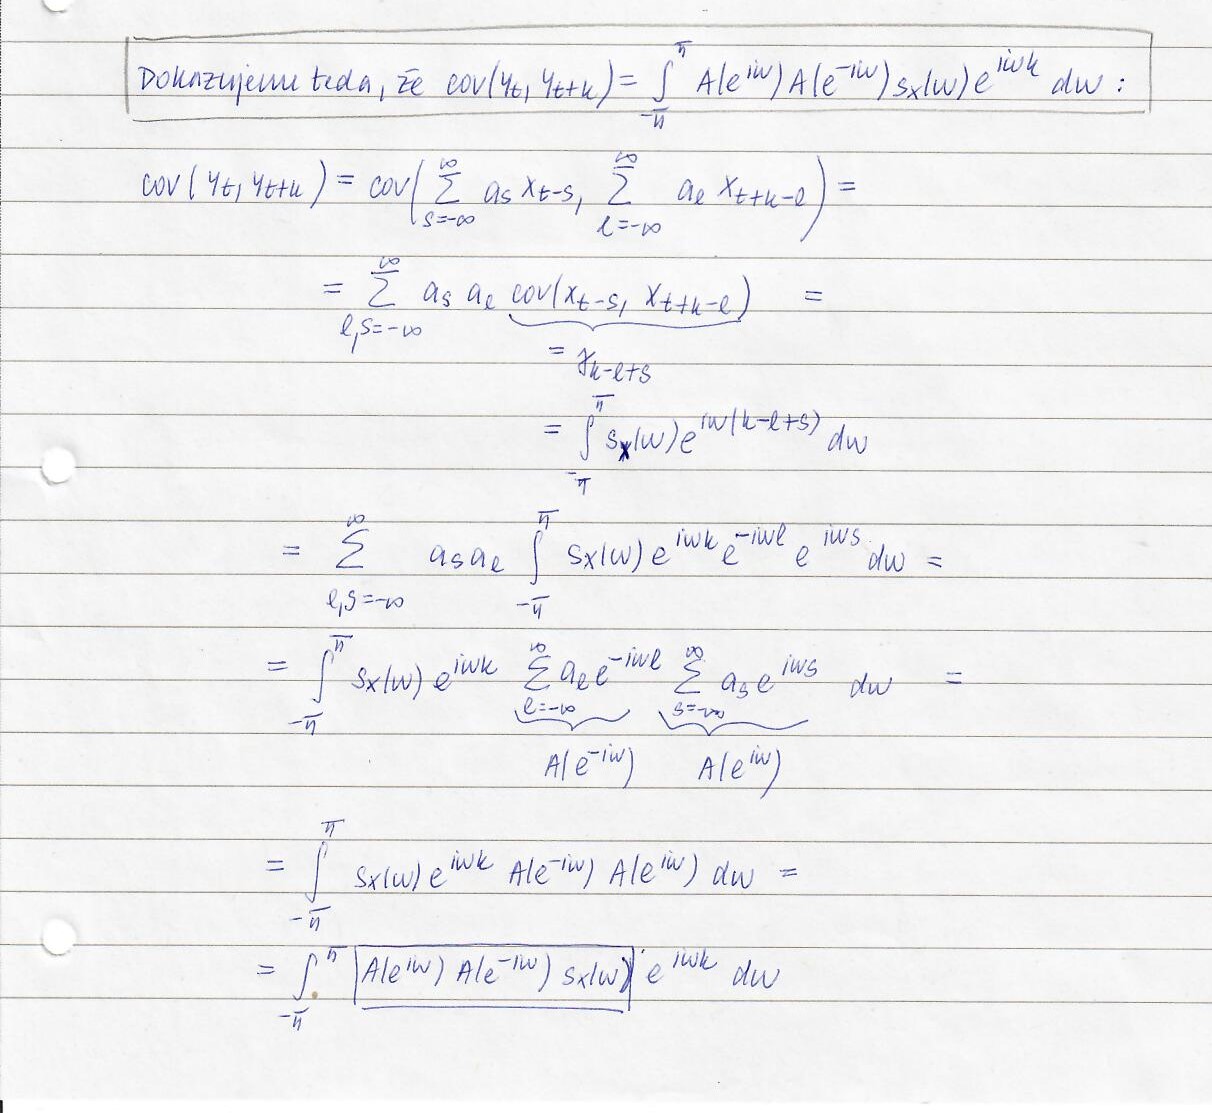 Dokazujeme teda, že cov(y_t, y_{t+k}) = ∫_{-π}^{π} A(e^{iω}) A(e^{-iω}) s_x(ω) e^{iωk} dω :
cov(y_t, y_{t+k}) = cov( ∑_{s=-∞}^{∞} a_s x_{t-s}, ∑_{l=-∞}^{∞} a_l x_{t+k-l} ) =
= ∑_{l,s=-∞}^{∞} a_s a_l cov(x_{t-s}, x_{t+k-l}) =
= γ_{k-l+s}
= ∫_{-π}^{π} s_x(ω) e^{iω(k-l+s)} dω
= ∑_{l,s=-∞}^{∞} a_s a_l ∫_{-π}^{π} s_x(ω) e^{iωk} e^{-iωl} e^{iωs} dω =
= ∫_{-π}^{π} s_x(ω) e^{iωk} ∑_{l=-∞}^{∞} a_l e^{-iωl} ∑_{s=-∞}^{∞} a_s e^{iωs} dω =
A(e^{-iω}) A(e^{iω})
= ∫_{-π}^{π} s_x(ω) e^{iωk} A(e^{-iω}) A(e^{iω}) dω =
= ∫_{-π}^{π} A(e^{iω}) A(e^{-iω}) s_x(ω) e^{iωk} dω